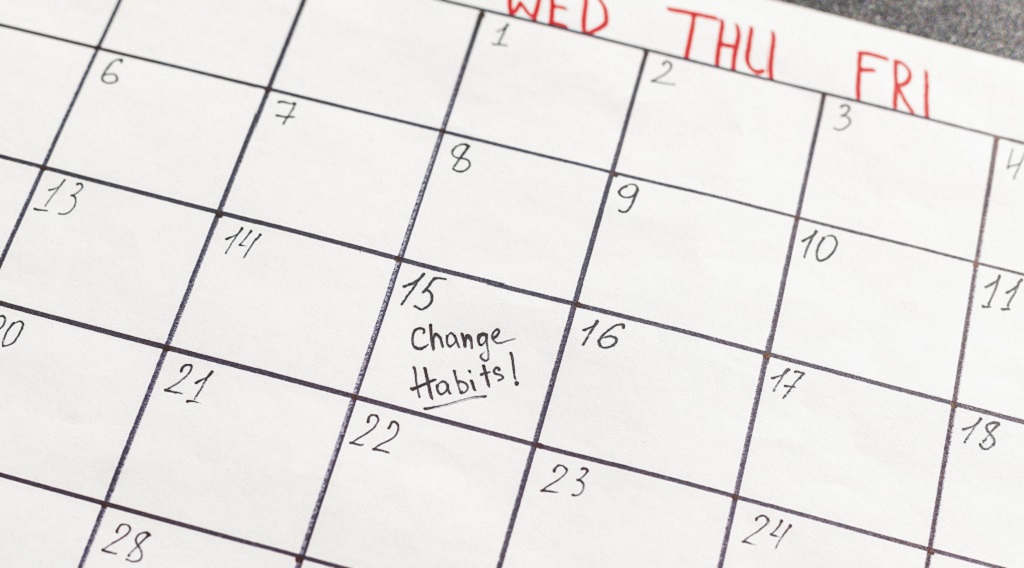 WED THU FRI
1 2 3 4
6 7 8 9 10 11
13 14 15 16 17 18
Change
Habits!
20 21 22 23 24
28